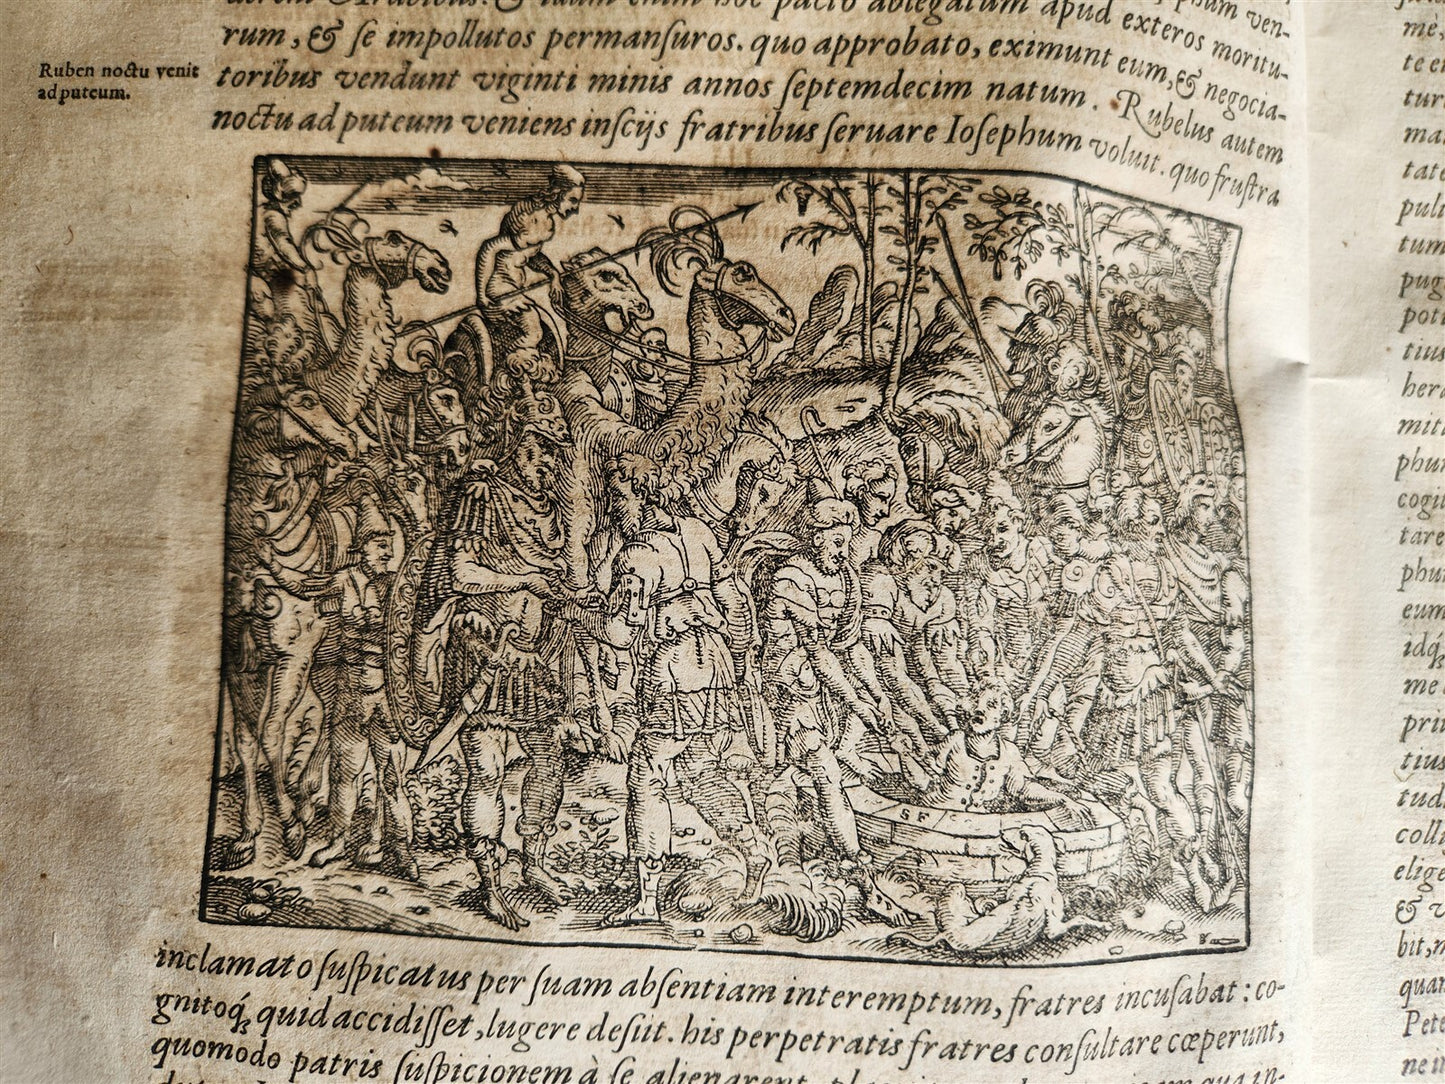 Ruben noctu venit
ad puteum.
pacto ablegatum apud exteros moritu-
rum, & se impollutos permansuros. quo approbato, eximunt eum, & negocia-
toribus vendunt viginti minis annos septemdecim natum. Rubelus autem
noctu ad puteum veniens insciis fratribus servare Iosephum voluit. quo frustra
SF
inclamato suspicatus per suam absentiam interemptum, fratres incusabat: co-
gnitoq́ꝫ quid accidisset, lugere desiit. his perpetratis fratres consultare cœperunt,
quomodo patris suspicionem à se alienarent.
mè,
te
tur
ma
tate
pul
tum
pug
pot
tius
her
mit
phu
cogi
tare
phu
eum
idq́ꝫ
me
pri
tius
tud
coll
elige
&
bit,
quan
Pete
ne